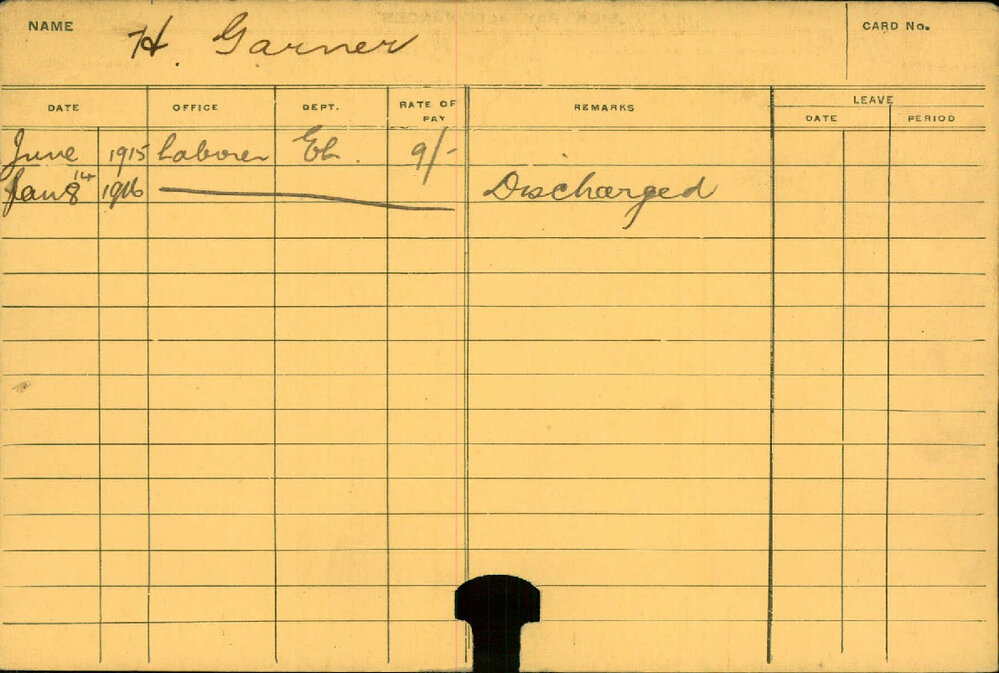 NAME H. Garner CARD No.
DATE OFFICE DEPT. RATE OF PAY REMARKS LEAVE
DATE PERIOD
June 1915 Laborer 9/-
Jan 1916 Discharged